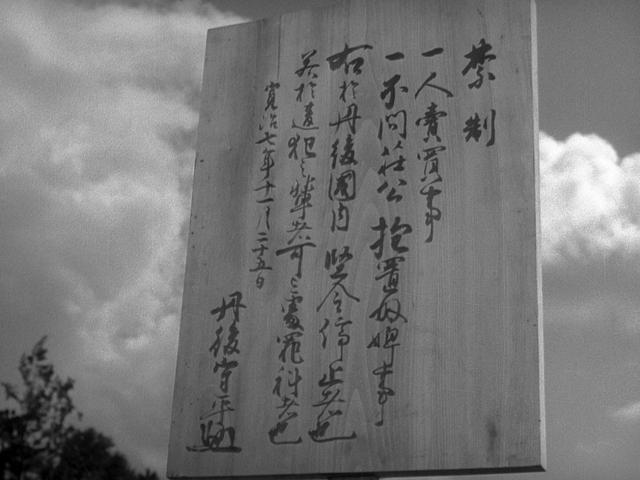 禁制
一人賣買事
一不問荘公抱置奴婢事
右於丹後國内堅令停止畢
若於違犯之輩者可被處罪科者也
寛治七年十一月二十五日
丹後守平